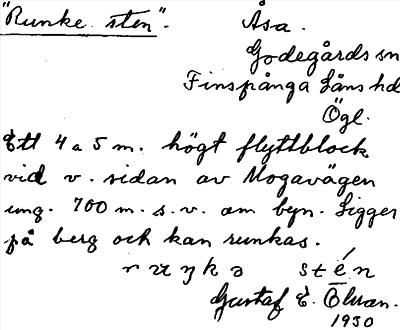 "Runke sten". Åsa.
Godegårds sn
Finspånga läns hd
Ögl.
Ett 4 a 5 m. högt flyttblock
vid v. sidan av Mogavägen
ung. 700 m. s.v. om byn. Ligger
på berg och kan runkas.
stén
Gustaf E. Öhman.
1930